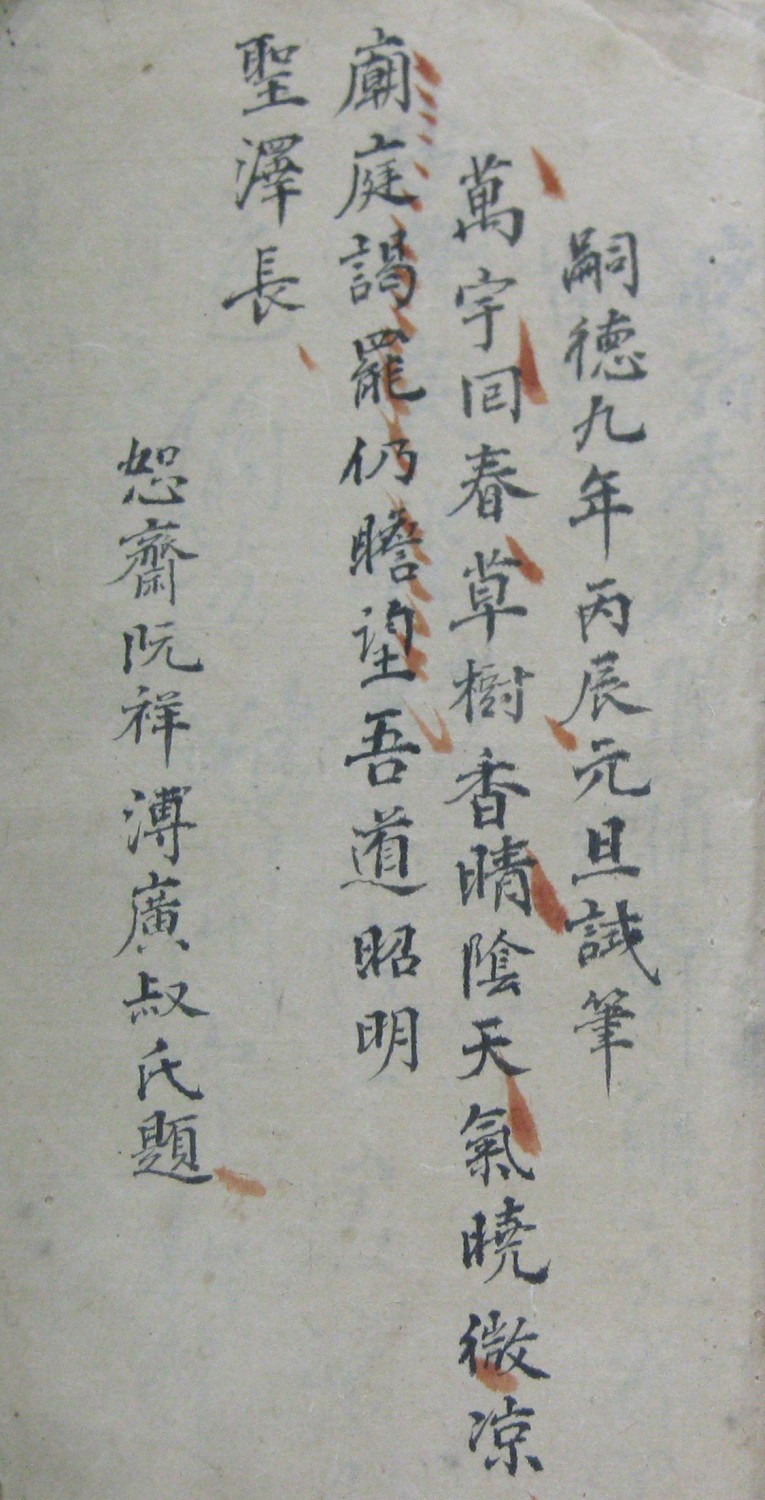 嗣德九年丙辰元旦試筆
萬宇回春草樹香晴陰天氣曉微凉
廟庭謁罷仍瞻望吾道昭明
聖澤長
恕齋阮祥溥廣叔氏題